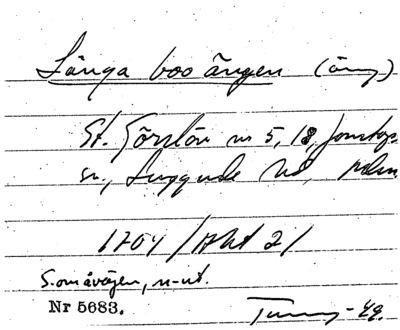 Långa boo ängen (äng)
St. Görslöv nr 5, 18, Jonstorps
sn., Luggude hd, Malm.
1704 / Akt 2 /
S. om åvägen, n-ut.
Nr 5683.